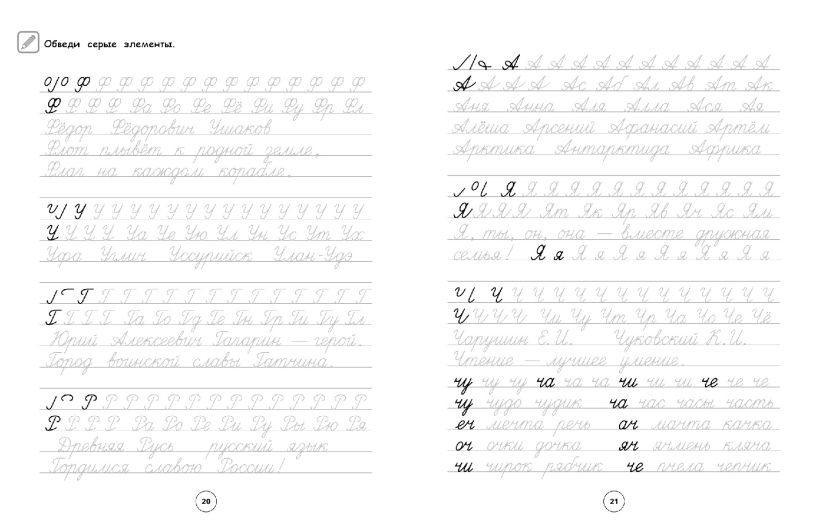 Обведи серые элементы.
Ф Ф Ф Ф Ф Ф Ф Ф Ф Ф Ф Ф Ф Ф
Ф Ф Ф Ф Фа Фо Фе Фё Фи Фу Фр Фл
Фёдор Фёдорович Ушаков
Флот плывёт к родной земле,
Флаг на каждом корабле.
У У У У У У У У У У У У У У У У
У У У У Уа Уе Ую Ул Ун Ус Ут Ух
Уфа Углич Уссурийск Улан-Удэ
Г Г Г Г Г Г Г Г Г Г Г Г Г Г
Г Г Г Г Га Го Гд Ге Гн Гр Ги Гу Гл
Юрий Алексеевич Гагарин — герой.
Город воинской славы Гатчина.
Р Р Р Р Р Р Р Р Р Р Р Р Р Р
Р Р Р Р Ра Ро Ре Ри Ру Ры Рю Ря
Древняя Русь русский язык
Гордимся славою России!
20
А А А А А А А А А А А А А
А А А А Ас Аб Ал Ав Ат Ак
Аня Анна Аля Алла Ася Ая
Алёша Арсений Афанасий Артём
Арктика Антарктида Африка
Я Я Я Я Я Я Я Я Я Я Я Я Я
Я Я Я Я Ят Як Яр Яв Яч Яс Ям
Я, ты, он, она — вместе дружная
семья! Я я Я я Я я Я я Я я Я я
Ч Ч Ч Ч Ч Ч Ч Ч Ч Ч Ч Ч Ч Ч
Ч Ч Ч Ч Чи Чу Чт Чр Ча Чо Че Чё
Чарушин Е.И. Чуковский К.И.
Чтение — лучшее учение.
чу чу чу ча ча ча чи чи чи че че че
чу чудо чудик ча час часы часть
еч мечта речь ач мачта качка
оч очки дочка яч ячмень кляча
чи чирок рябчик че пчела чепчик
21